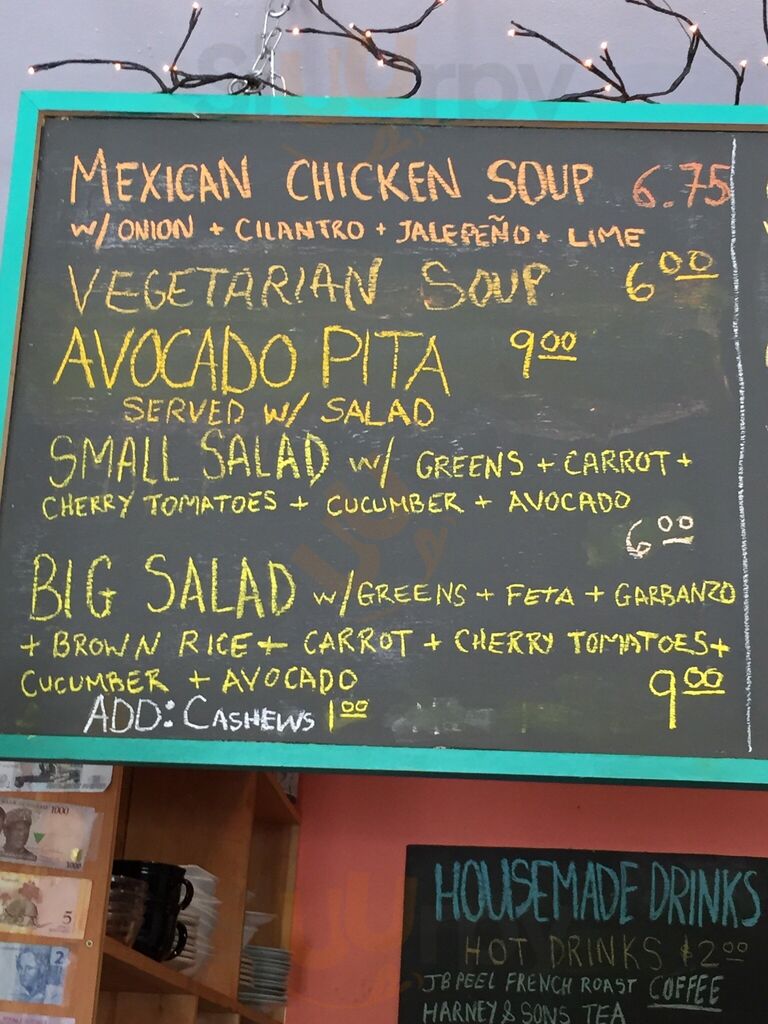 MEXICAN CHICKEN SOUP 6.75
W/ ONION + CILANTRO + JALEPEÑO + LIME
VEGETARIAN SOUP 6.00
AVOCADO PITA 9.00
SERVED W/ SALAD
SMALL SALAD W/ GREENS + CARROT +
CHERRY TOMATOES + CUCUMBER + AVOCADO
6.00
BIG SALAD W/ GREENS + FETA + GARBANZO
+ BROWN RICE + CARROT + CHERRY TOMATOES +
CUCUMBER + AVOCADO
9.00
ADD: CASHEWS 1.00
1000
1000
5
2
HOUSEMADE DRINKS
HOT DRINKS $2.00
JB PEEL FRENCH ROAST COFFEE
HARNEY & SONS TEA